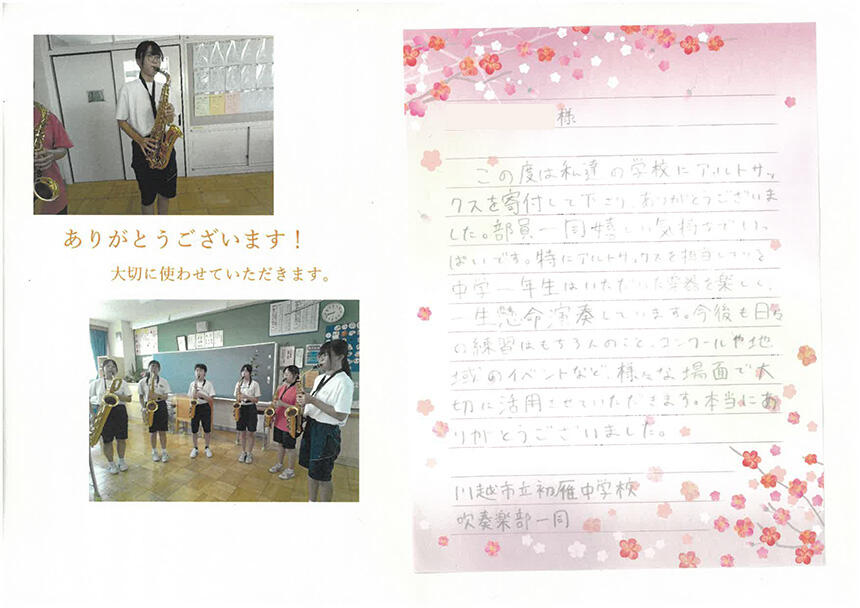 ありがとうございます！
大切に使わせていただきます。
様
この度は私達の学校にアルトサッ
クスを寄付して下さり、ありがとうございま
した。部員一同嬉しい気持ちでいっ
ぱいです。特にアルトサックスを担当している
中学一年生はいただいた楽器を楽しく、
一生懸命演奏しています。今後も日々
の練習はもちろんのこと、コンクールや地
域のイベントなど、様々な場面で大
切に活用させていただきます。本当にあ
りがとうございました。
川越市立初雁中学校
吹奏楽部一同